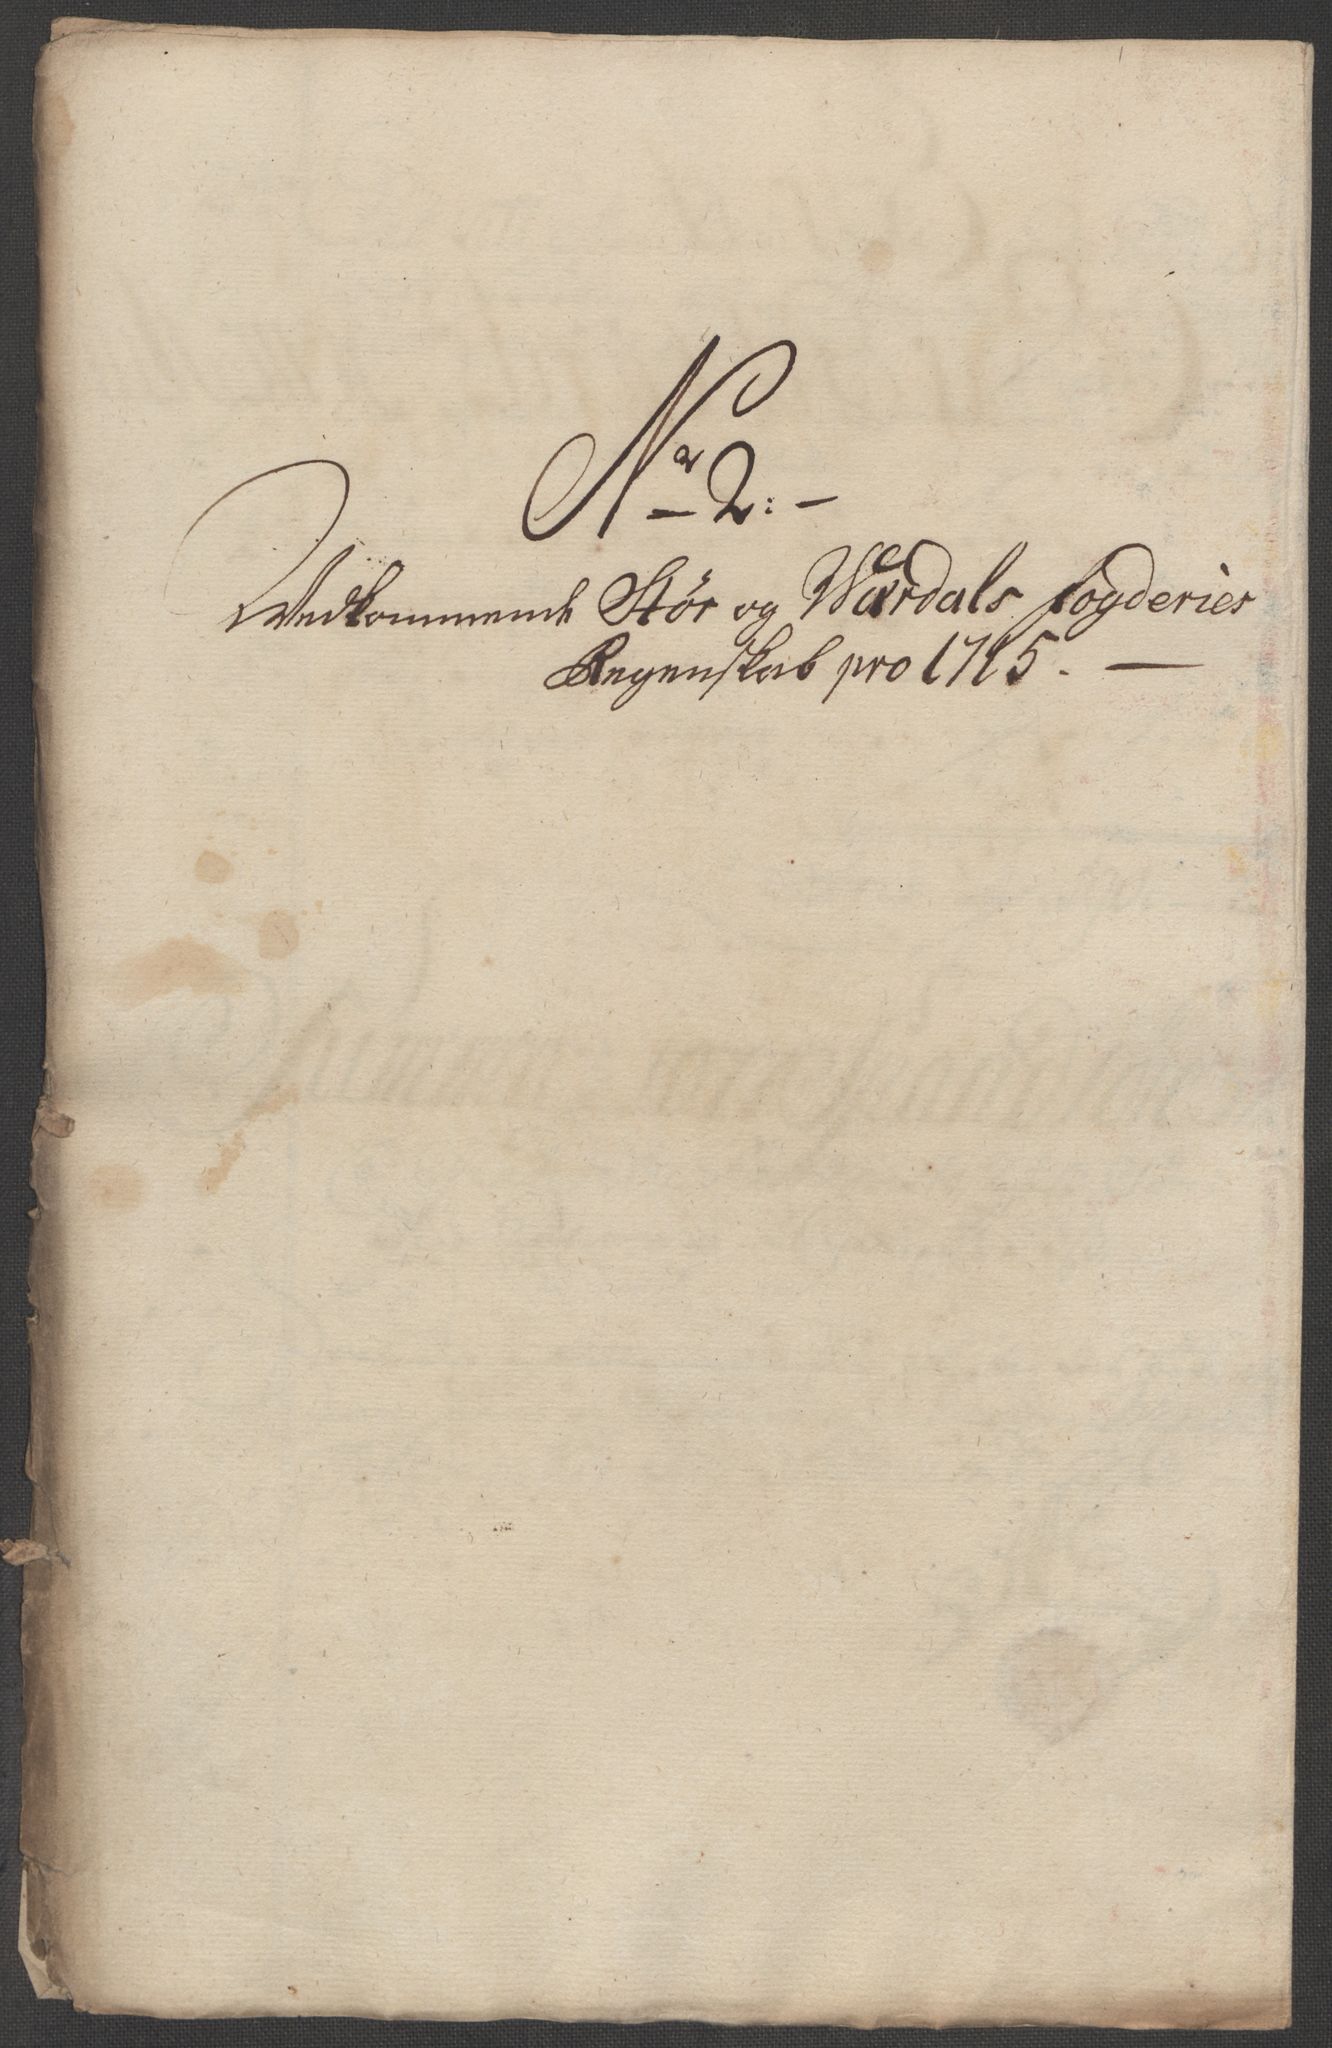 Nr 2:
Vedkommende Stør og Wærdals fogderies
Regenskab pro 1715.